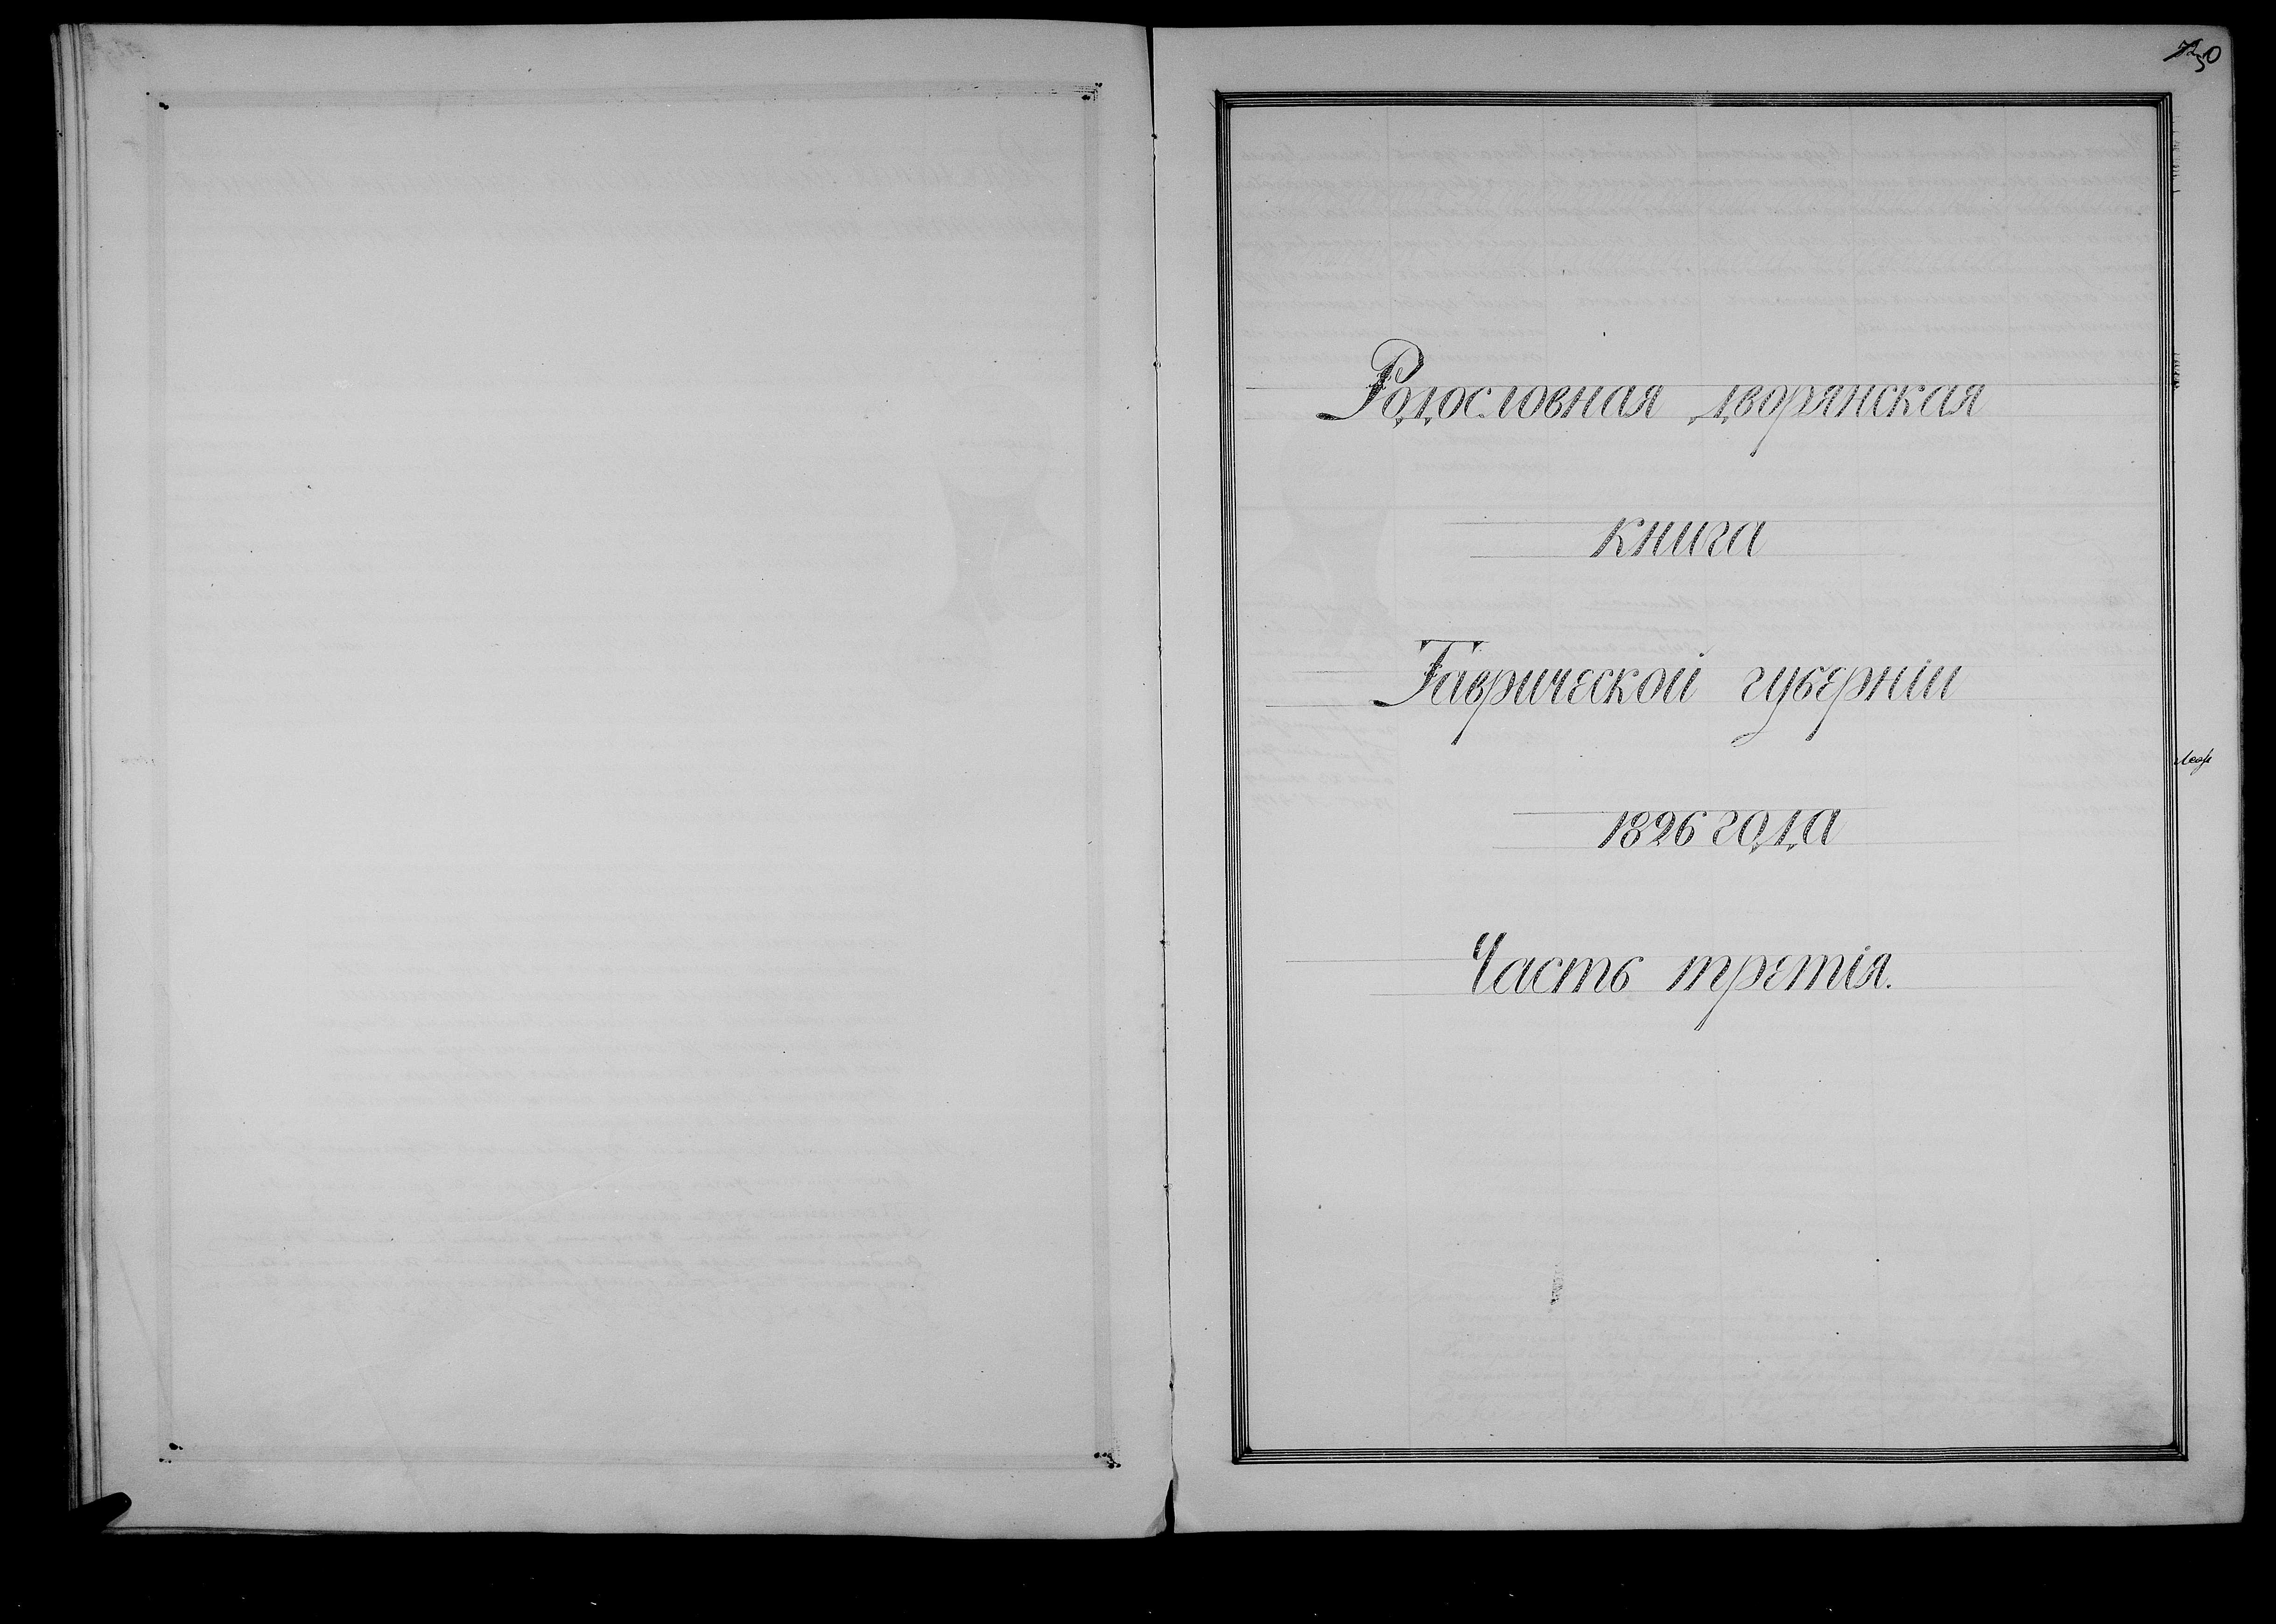 Родословная дворянская
книга
Таврической губерніи
1896 года
Часть третія.